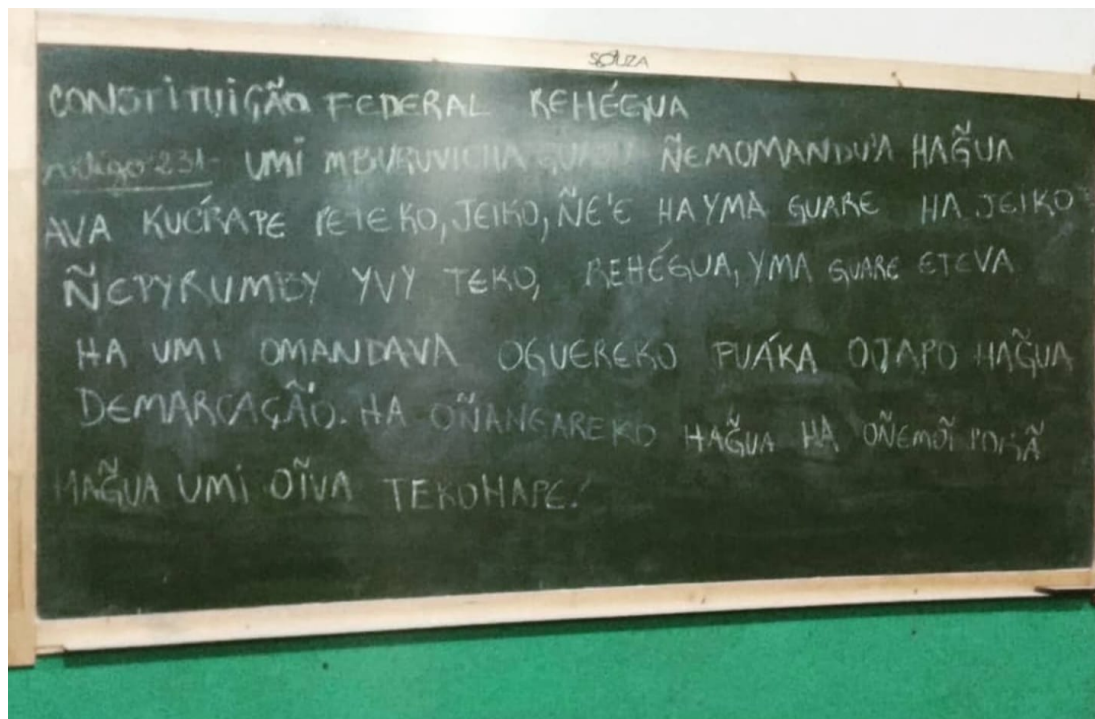 SOUZA
CONSTITUIÇÃO FEDERAL REHÉGUA
Artigo 231- UMI MBURUVICHA GUASU ÑEMOMANDU'A HAG̃UA
AVA KUÉRAPE TETEKO, JEIKO, ÑE'E HA YMA GUARE HA JEIKO
ÑEPYRUMBY YVY TEKO, REHÉGUA, YMA GUARE ETEVA
HA UMI OMANDAVA OGUEREKO PUÁKA OJAPO HAG̃UA
DEMARCAÇÃO. HA OÑANGAREKO HAG̃UA HA OÑEMOĨ PORÃ
HAG̃UA UMI OĨVA TEKOHAPE!